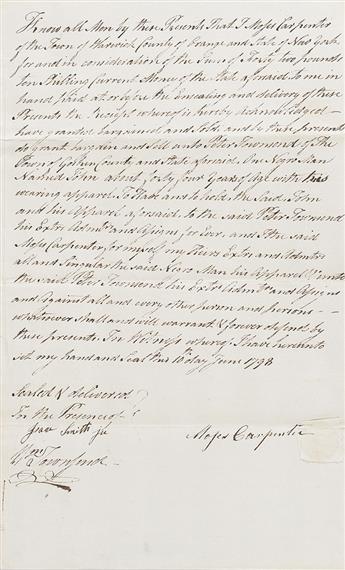 Know all Men by these Presents That I Moses Carpenter
of the Town of Warwick County of Orange and State of New York
for and in consideration of the Sum of Thirty two pounds
ten Shilling Current Money of the State aforsaid to me in
hand paid at or before the Ensealing and delivery of these
Presents the Receipt whereof is hereby acknowledged
have granted bargained and Sold, and by these presents
do Grant bargain and Sell unto Peter Townsend of the
Town of Goshen County and State aforesaid One Negro Man
Named John about forty four Years of Age with his
wearing apparel To Have and to hold the Said John
and his Apparel aforsaid to the said Peter Townsend
his Extrs Admtrs and Assigns for Ever, and I the said
Moses Carpenter for myself my Heirs Extrs and Admtrs
all and Singular the said Negro Man his Apparel Unto
the said Peter Townsend his Extrs Admtrs and Assigns
and Against all and every other person and persons
whatsoever shall and will warrant & forever defend by
these presents. In Witness whereof I have hereunto
set my hand and Seal this day June 1798
Sealed & delivered
In the Presence of
Smith jr
Moses Carpenter
Wm Townsend